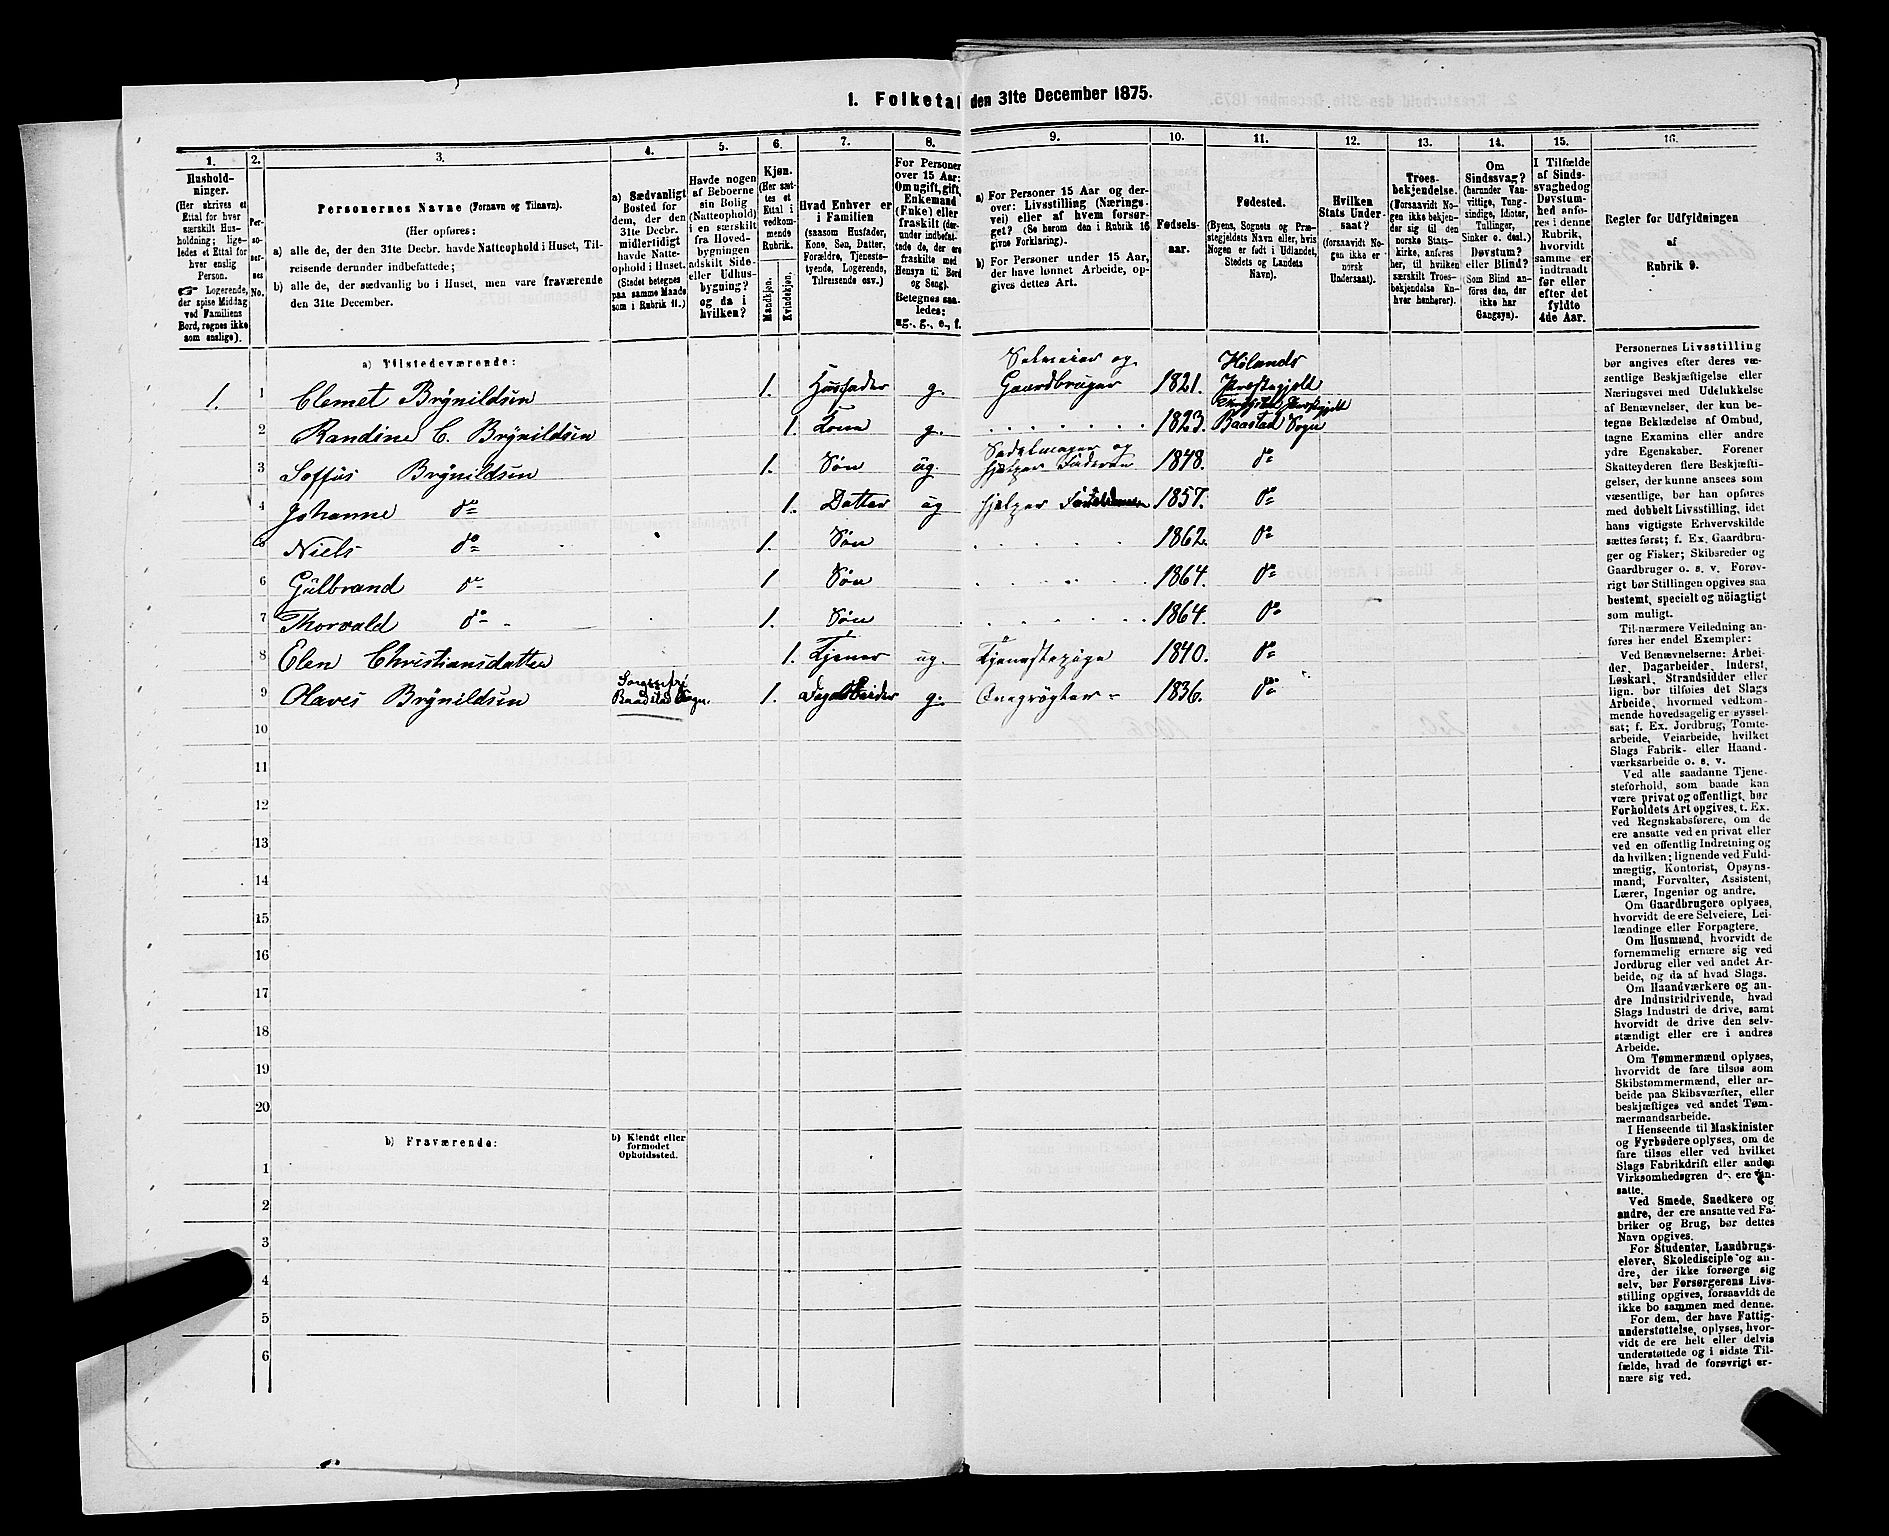 1. Folketal den 31te December 1875.
1.
Hushold-
ninger.
(Her skrives et
Ettal for hver
særskilt Hus-
holdning; lige-
ledes et Ettal for
hver enslig
Person.
☞ Logerende,
der spise Middag
ved Familiens
Bord, regnes ikke
som enslige).
2.
Per-
so-
ner-
nes
No.
3.
Personernes Navne (Fornavn og Tilnavn).
(Her opføres:
a) alle de, der den 31te Decbr. havde Natteophold i Huset, Til-
reisende derunder indbefattede;
b) alle de, der sædvanlig bo i Huset, men vare fraværende
den 31te December.
4.
a) Sædvanligt
Bosted for
dem, der den
31te Decbr.
midlertidigt
havde Natte-
ophold i Huset.
(Stedet betegnes
paa samme Maade
som i Rubrik 11.)
5.
Havde nogen
af Beboerne
sin Bolig
(Natteophold)
i en særskilt
fra Hoved-
bygningen
adskilt Side-
eller Udhus-
bygning?
og da i
hvilken?
6.
Kjøn.
(Her sæt-
tes et
Ettal i
vedkom-
mende
Rubrik.
Mandkjøn.
Kvindekjøn.
7.
Hvad Enhver er
i Familien
(saasom Husfader,
Kone, Søn, Datter,
Forældre, Tjeneste-
tyende, Logerende,
Tilreisende osv.)
8.
For Personer
over 15 Aar:
Om ugift, gift,
Enkemand
(Enke) eller
fraskilt (der-
under indbefat-
tede de, der ere
fraskilte med
Hensyn til Bord
og Seng).
Betegnes saa-
ledes:
ug., g., e., f.
9.
a) For Personer 15 Aar og der-
over: Livsstilling (Nærings-
vei) eller af hvem forsør-
get? (Se herom den i Rubrik 16
givne Forklaring).
b) For Personer under 15 Aar,
der have lønnet Arbeide, op-
gives dettes Art.
10.
Fødsels-
aar.
11.
Fødested.
(Byens, Sognets og Præ-
stegjeldets Navn eller, hvis
Nogen er født i Udlandet,
Stedets og Landets
Navn).
12.
Hvilken
Stats Under-
saat?
(forsaavidt No-
gen ikke er
norsk
Undersaat).
13.
Troes-
bekjendelse.
(Forsaavidt No-
gen ikke bekjen-
der sig til den
norske Stats-
kirke, anføres
her, til hvilken
særskilt Troes-
bekjendelse En-
hver henhører).
14.
Om
Sindssvag?
(herunder Van-
vittige, Tung-
sindige, Idioter,
Tullinger,
Sinker o. desl.)
Døvstum?
eller Blind?
(Som Blind an-
føres den, der
ikke har
Gangsyn).
15.
I Tilfælde
af Sinds-
svaghed og
Døvstum-
hed anfø-
res i denne
Rubrik,
hvorvidt
samme er
indtraadt
før eller
efter det
fyldte
4de Aar.
16.
Regler for Udfyldningen
af
Rubrik 9.
a) Tilstedeværende:
1. 1 Clemet Brynildsen 1. Husfader g. Selveier og Gaardbruger 1821. Hølands Præstegjelt
2 Randine C. Brynildsen 1. Kone g. 1823. Præstegjelt Baastad Sogn
3 Soffus Brynildsen 1. Søn ug. Sadelmager og hjelper Faderen 1848. do
4 Johanne do 1. Datter ug hjelper 1857. do
5 Niels do 1. Søn 1862. do
6 Gulbrand do 1 Søn 1864. do
7 Thorvald do 1. Søn 1864. do
8 Elen Christiansdatter 1. Tjener ug. Tjenestepige 1840. do
9 Olaves Brynildsen Baadstad Sogn. 1. g. 1836. do
10
11
12
13
14
15
16
17
18
19
20
b) Fraværende:
b) Kjendt eller
formodet
Opholdssted.
1
2
3
4
5
6
Personernes Livsstilling
bør angives efter deres væ-
sentlige Beskjæftigelse eller
Næringsvei med Udelukkelse
af Benævnelser, der kun be-
tegne Beklædelse af Ombud,
tagne Examina eller andre
ydre Egenskaber. Forener
Skatteyderen flere Beskjæfti-
gelser, der kunne ansees som
væsentlige, bør han opføres
med dobbelt Livsstilling, idet
hans vigtigste Erhvervskilde
sættes først; f. Ex. Gaardbru-
ger og Fisker; Skibsreder og
Gaardbruger o. s. v. Forøv-
rigt bør Stillingen opgives saa
bestemt, specielt og nöiagtigt
som muligt.
Til nærmere Veiledning an-
føres her endel Exempler:
Ved Benævnelserne: Arbei-
der, Dagarbeider, Inderst,
Løskarl, Strandsidder eller
lign. bør tilføies det Slags
Arbeide, hvormed vedkom-
mende hovedsagelig er syssel-
sat; f. Ex. Jordbrug, Tømte-
arbeide, Veiarbeide, hvilket
Slags Fabrik- eller Haand-
værksarbeide o. s. v.
Ved alle saadanne Tjene-
steforhold, som baade kan
være privat og offentligt, bør
Forholdets Art opgives, t. Ex.
ved Regnskabsførere, om de
ere ansatte ved en privat eller
ved en offentlig Indretning og
da hvilken; lignende ved Fuld-
mægtig, Kontorist, Opsyns-
mand, Forvalter, Assistent,
Lærer, Ingeniør og andre.
Om Gaardbrugere oplyses,
hvorvidt de ere Selveiere, Lei-
lændinge eller Forpagtere.
Om Husmænd, hvorvidt de
fornemmelig ernære sig ved
Jordbrug eller ved andet Ar-
beide, og da af hvad Slags.
Om Haandværkere og an-
dre Industridrivende, hvad
Slags Industri de drive, samt
hvorvidt de drive den selv-
stændigt eller ere i andres
Arbeide.
Om Tømmermænd oplyses,
hvorvidt de fare tilsøs som
Skibstømmermænd, eller ar-
beide paa Skibsværfter, eller
beskjæftiges ved andet Tøm-
mermandsarbeide.
I Henseende til Maskinister
og Fyrbødere oplyses, om de
fare tilsøs eller ved hvilket
Slags Fabrikdrift eller anden
Virksomhedsgren de ere an-
satte.
Ved Smede, Snedkere og
andre, der ere ansatte ved Fa-
briker og Brug, bør dettes
Navn opgives.
For Studenter, Landbrugs-
elever, Skoledisciple og an-
dre, der ikke forsørge sig
selv, bør Forsørgerens Livs-
stilling opgives, forsaavidt de
ikke bo sammen med denne.
For dem, der have Fattig-
understøttelse, oplyses, hvor-
vidt de ere helt eller delvis
understøttede og i sidste Til-
fælde, hvad de forøvrigt er-
nære sig ved.